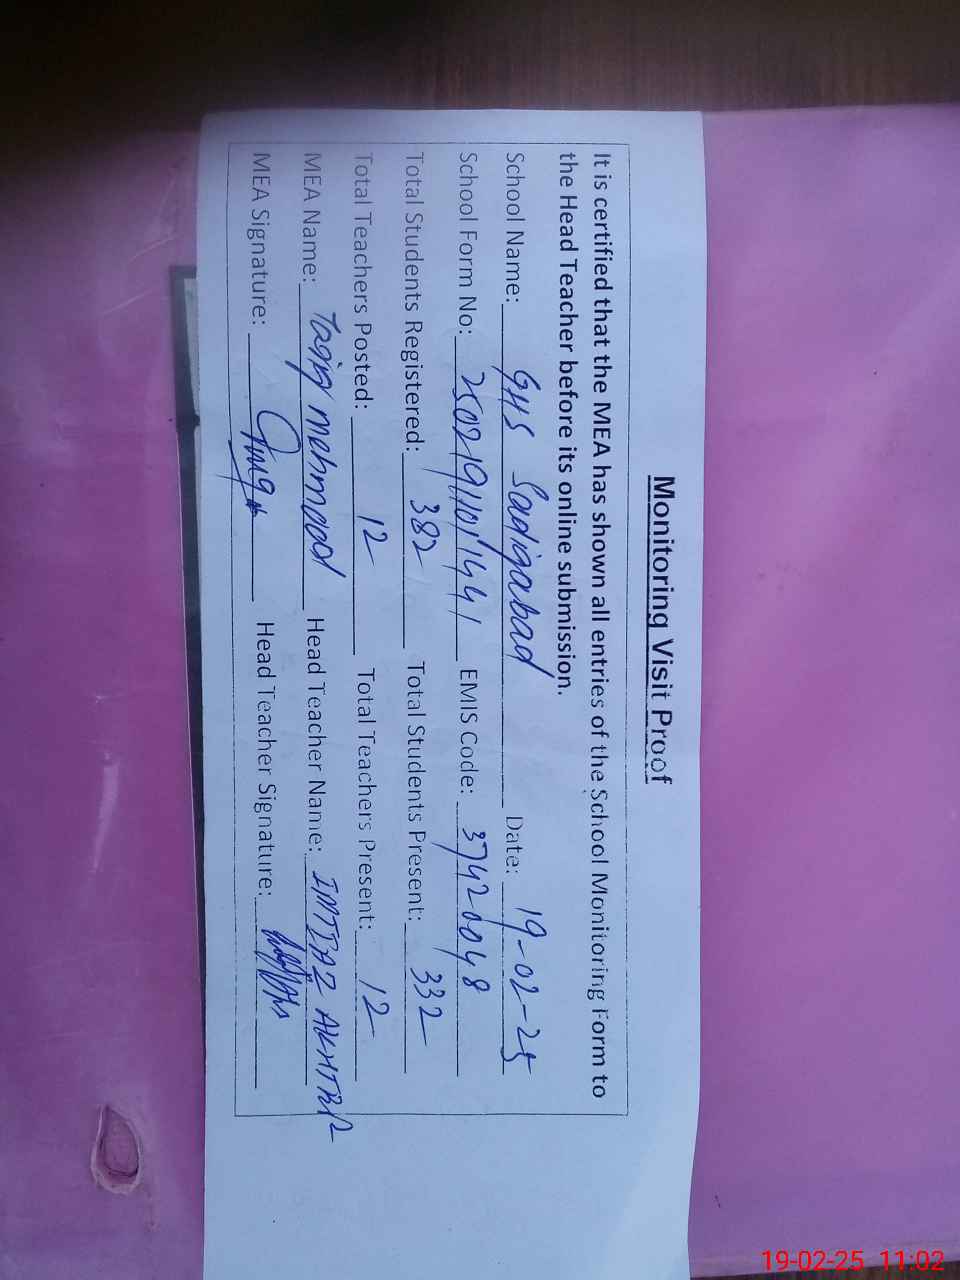 Monitoring Visit Proof
It is certified that the MEA has shown all entries of the School Monitoring Form to
the Head Teacher before its online submission.
School Name: GHS Sadiqabad Date: 19-02-25
School Form No: 25021911011441 EMIS Code: 37420048
Total Students Registered: 382 Total Students Present: 332
Total Teachers Posted: 12 Total Teachers Present: 12
MEA Name: Taqiq mehmood Head Teacher Name: IMTIAZ AKHTAR
MEA Signature: Head Teacher Signature:
19-02-25 11:02